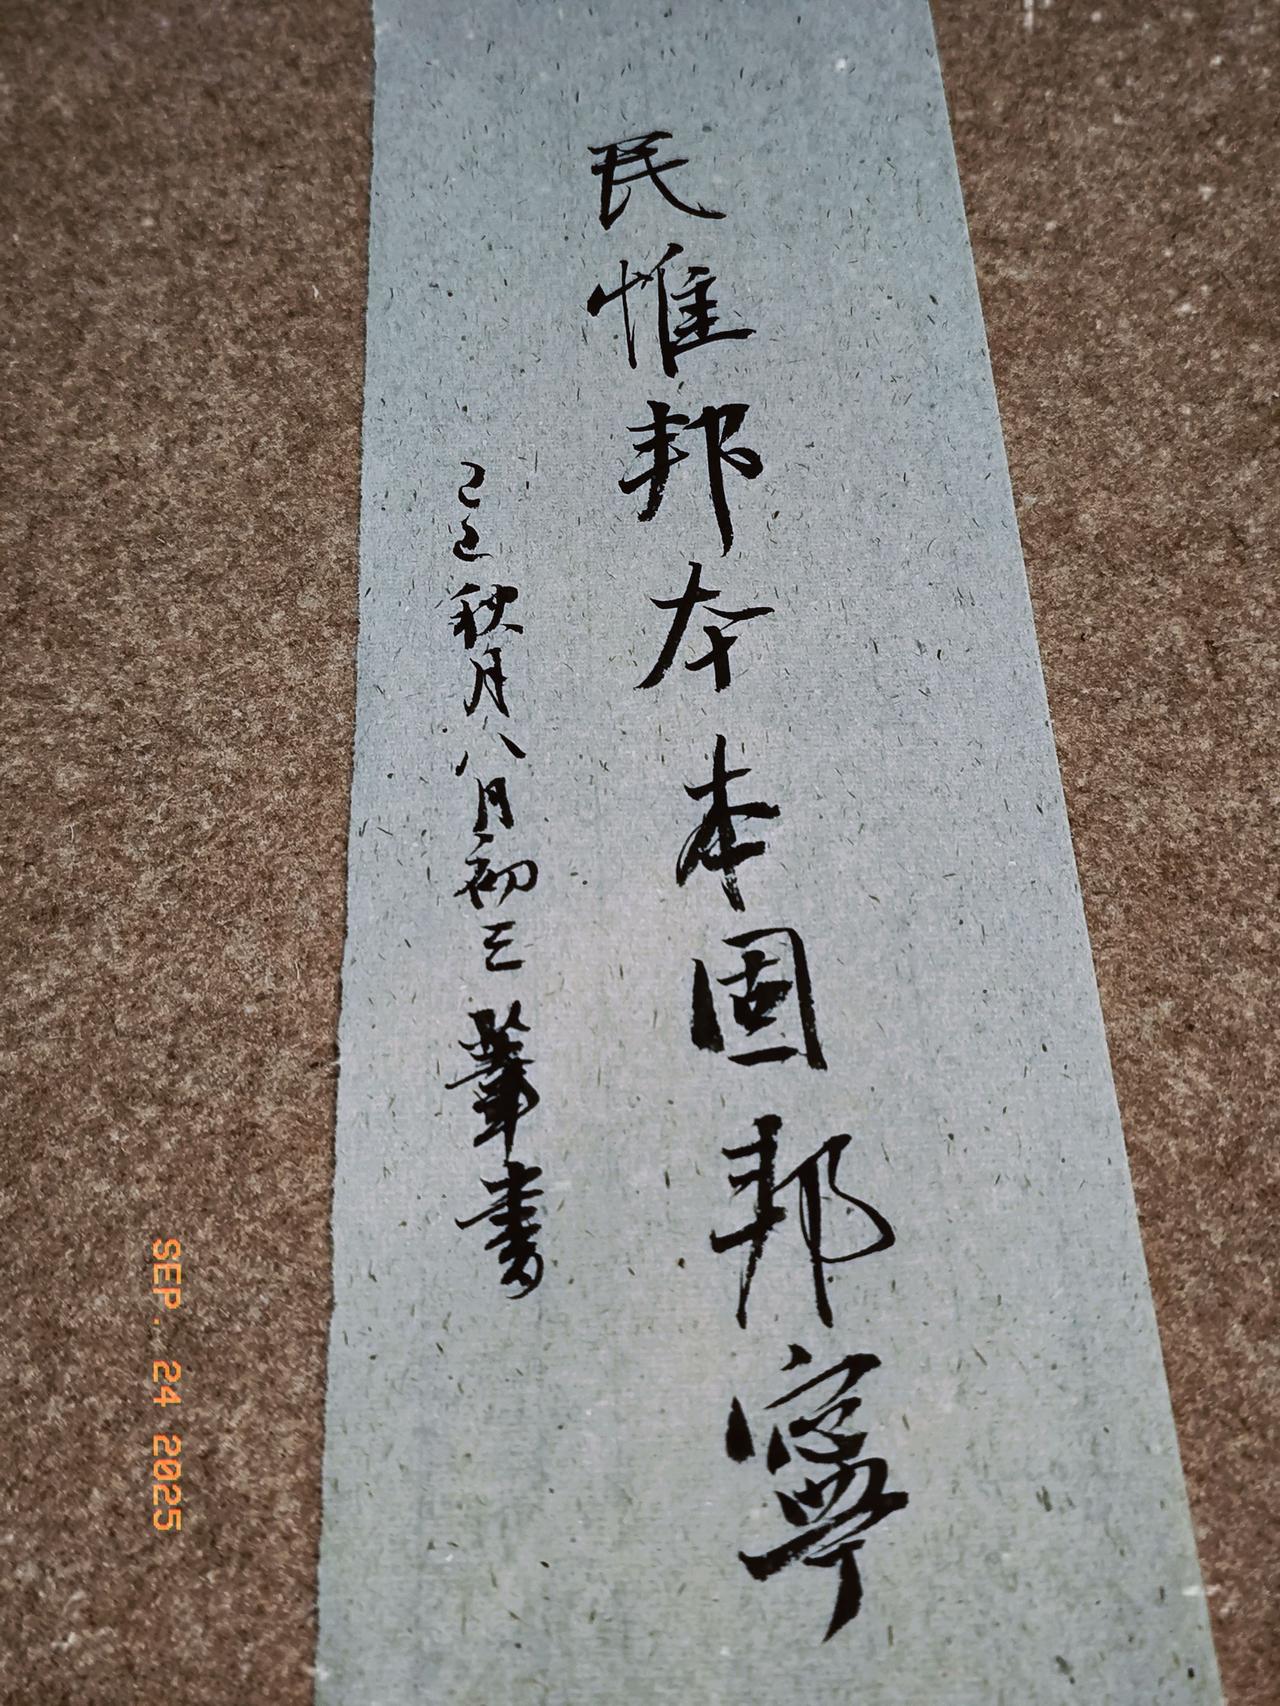 民惟邦本本固邦寧
乙巳秋月八月初三肇书
SEP. 24 2025